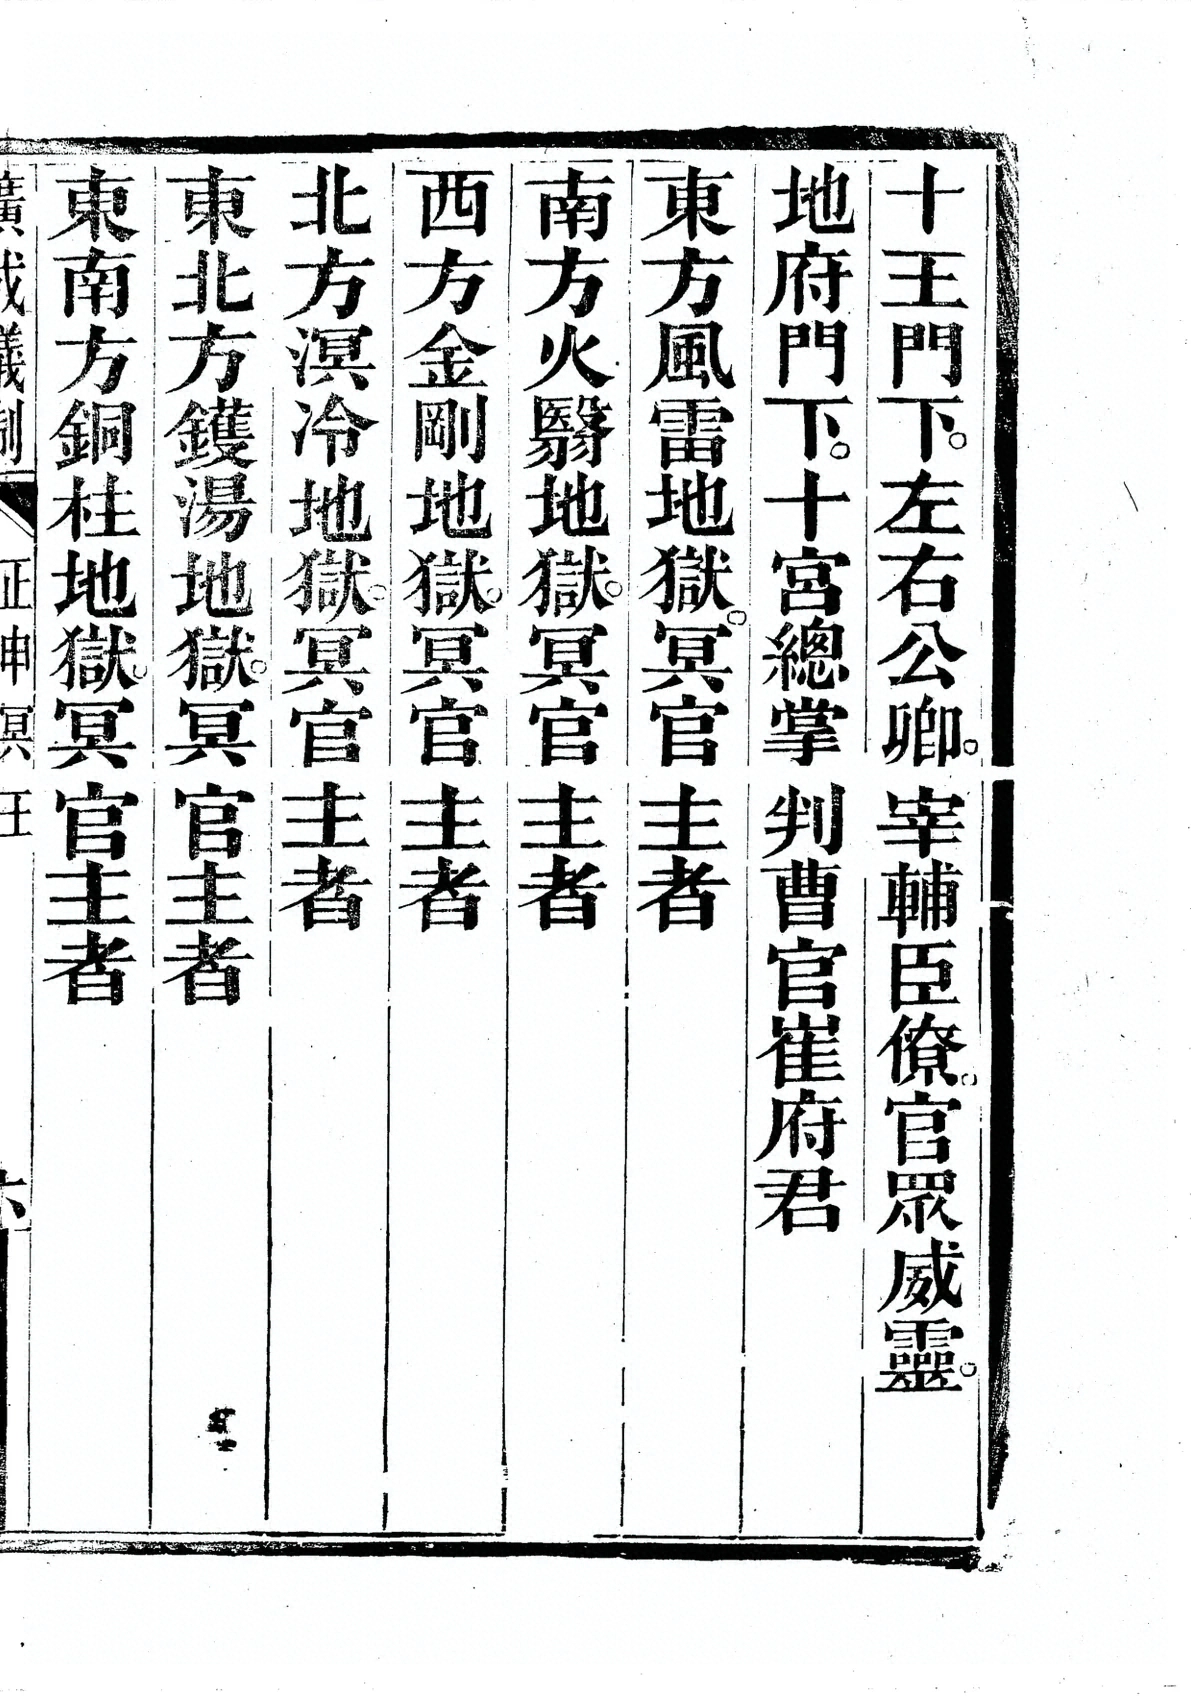 十王門下。左右公卿。宰輔臣僚。官眾威靈。
地府門下。十宮總掌判曹官崔府君
東方風雷地獄。冥官主者
南方火翳地獄。冥官主者
西方金剛地獄。冥官主者
北方溟冷地獄。冥官主者
東北方鑊湯地獄。冥官主者
東南方銅柱地獄。冥官主者
廣成儀制 正申冥王 六